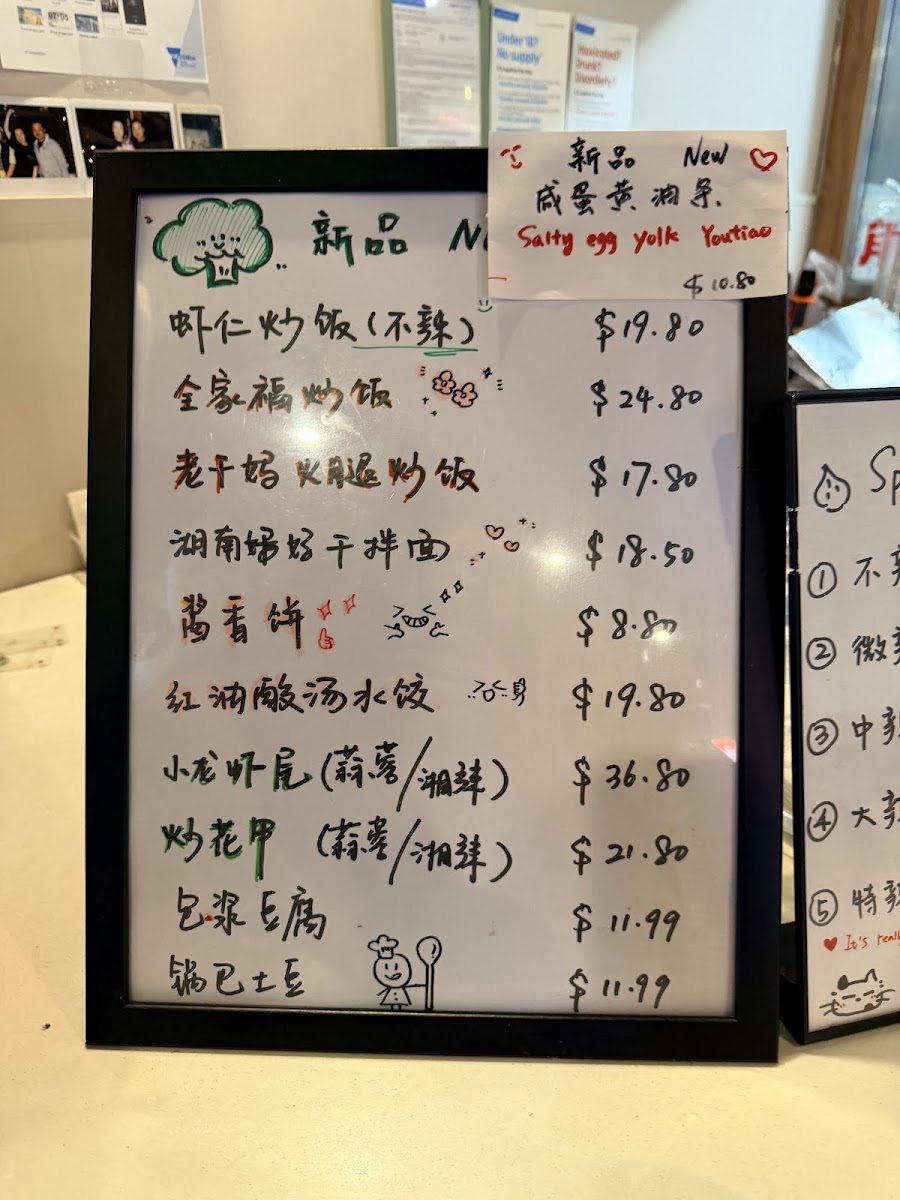 VICTORIA
Under 18?
No supply
Intoxicated?
Drunk?
Disorderly?
新品 New
咸蛋黄油条
Salty egg yolk Youtiao
$10.80
新品 N
虾仁炒饭(不辣) $19.80
全家福炒饭 $24.80
老干妈火腿炒饭 $17.80
湖南婦好干拌面 $18.50
酱香饼 $8.80
红油酸汤水饺 $19.80
小龙虾尾(蒜蓉/湘辣) $36.80
炒花甲 (蒜蓉/湘辣) $21.80
包浆豆腐 $11.99
锅巴土豆 $11.99
Sp
① 不
② 微
③ 中
④ 大
⑤ 特
It's really